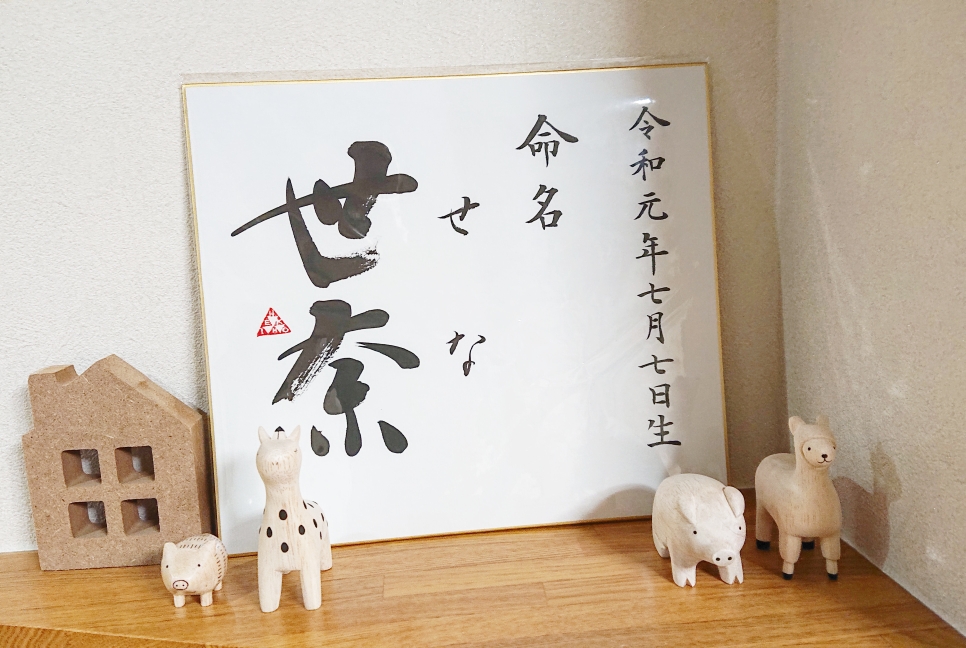 令和元年七月七日生
命名
せな
世奈